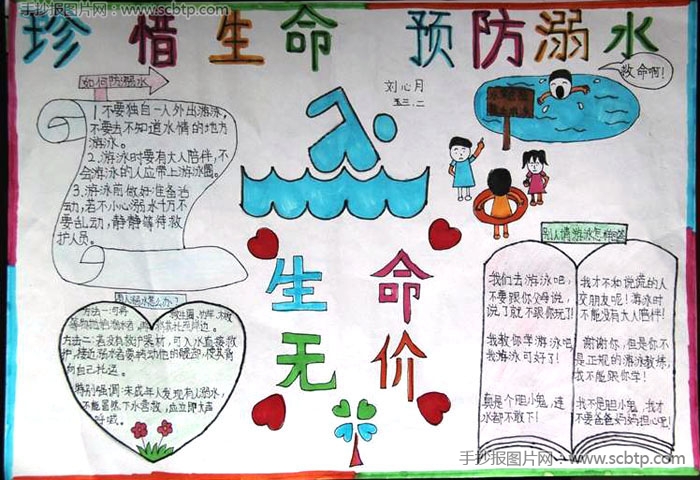 手抄报图片网：www.scbtp.com
珍惜生命 预防溺水
刘心月
五三.二
救命啊!
如何防溺水
1.不要独自一人外出游泳,
不要去不知道水情的地方
游泳。
2.游泳时要有大人陪伴,不
会游泳的人应带上游泳圈。
3.游泳前做好准备活
动,若不小心溺水千万不
要乱动,静静等待救
护人员。
生命
无价
别人情游泳怎样回答
我们去游泳吧,
不要跟你父母说,
说了就不跟你玩了!
我教你学游泳吧
我游泳可好了!
真是个胆小鬼,连
水都不敢下!
我才不和说谎的人
交朋友呢!游泳时
不能没有大人陪伴!
谢谢你,但是你不
是正规的游泳教练,
我不能跟你学!
我不是胆小鬼,我才
不要爸爸妈妈担心吧!
有人溺水怎么办?
方法二:若没有救护器材,可入水直接救
护,接近溺水者要转动他的髋部,使其背
向自己拖运。
特别强调:未成年人发现有人溺水,
不能冒然下水营救,应立即大声
呼喊。
手抄报图片网：www.scbtp.com